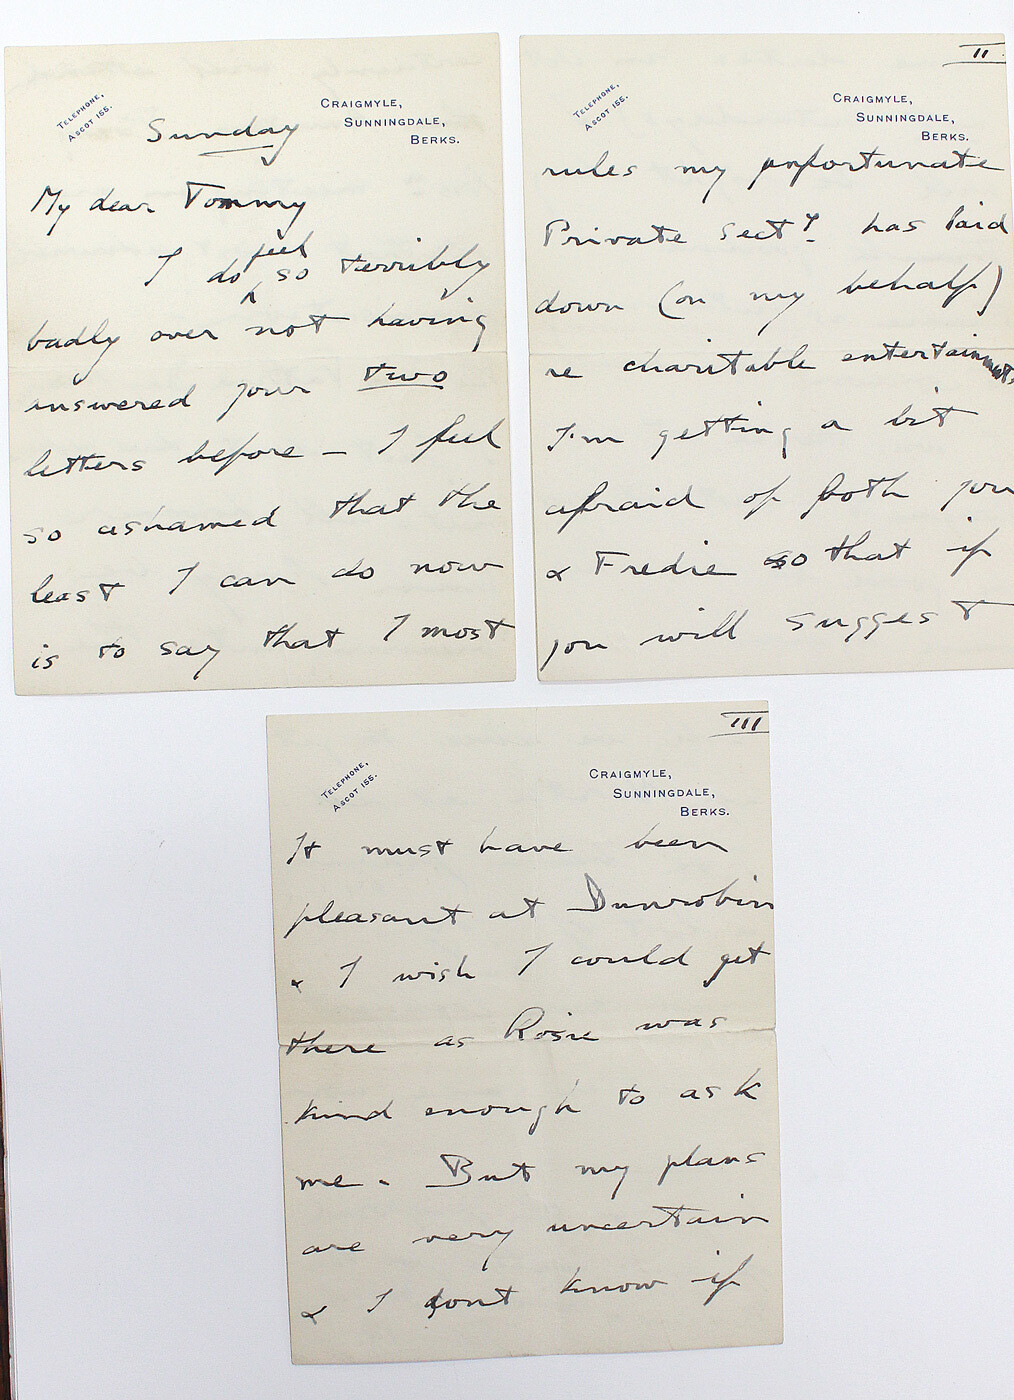 TELEPHONE,
ASCOT 155.
CRAIGMYLE,
SUNNINGDALE,
BERKS.
Sunday
My dear Tommy
I do feel so terribly
badly over not having
answered your two
letters before – I feel
so ashamed that the
least I can do now
is to say that I most
II
TELEPHONE,
ASCOT 155.
CRAIGMYLE,
SUNNINGDALE,
BERKS.
rules my unfortunate
Private Secty. has laid
down (on my behalf)
re charitable entertainments
I'm getting a bit
afraid of both you
& Fredie so that if
you will suggest
III
TELEPHONE,
ASCOT 155.
CRAIGMYLE,
SUNNINGDALE,
BERKS.
It must have been
pleasant at Dunrobin
& I wish I could get
there as Rosie was
kind enough to ask
me. But my plans
are very uncertain
& I dont know if